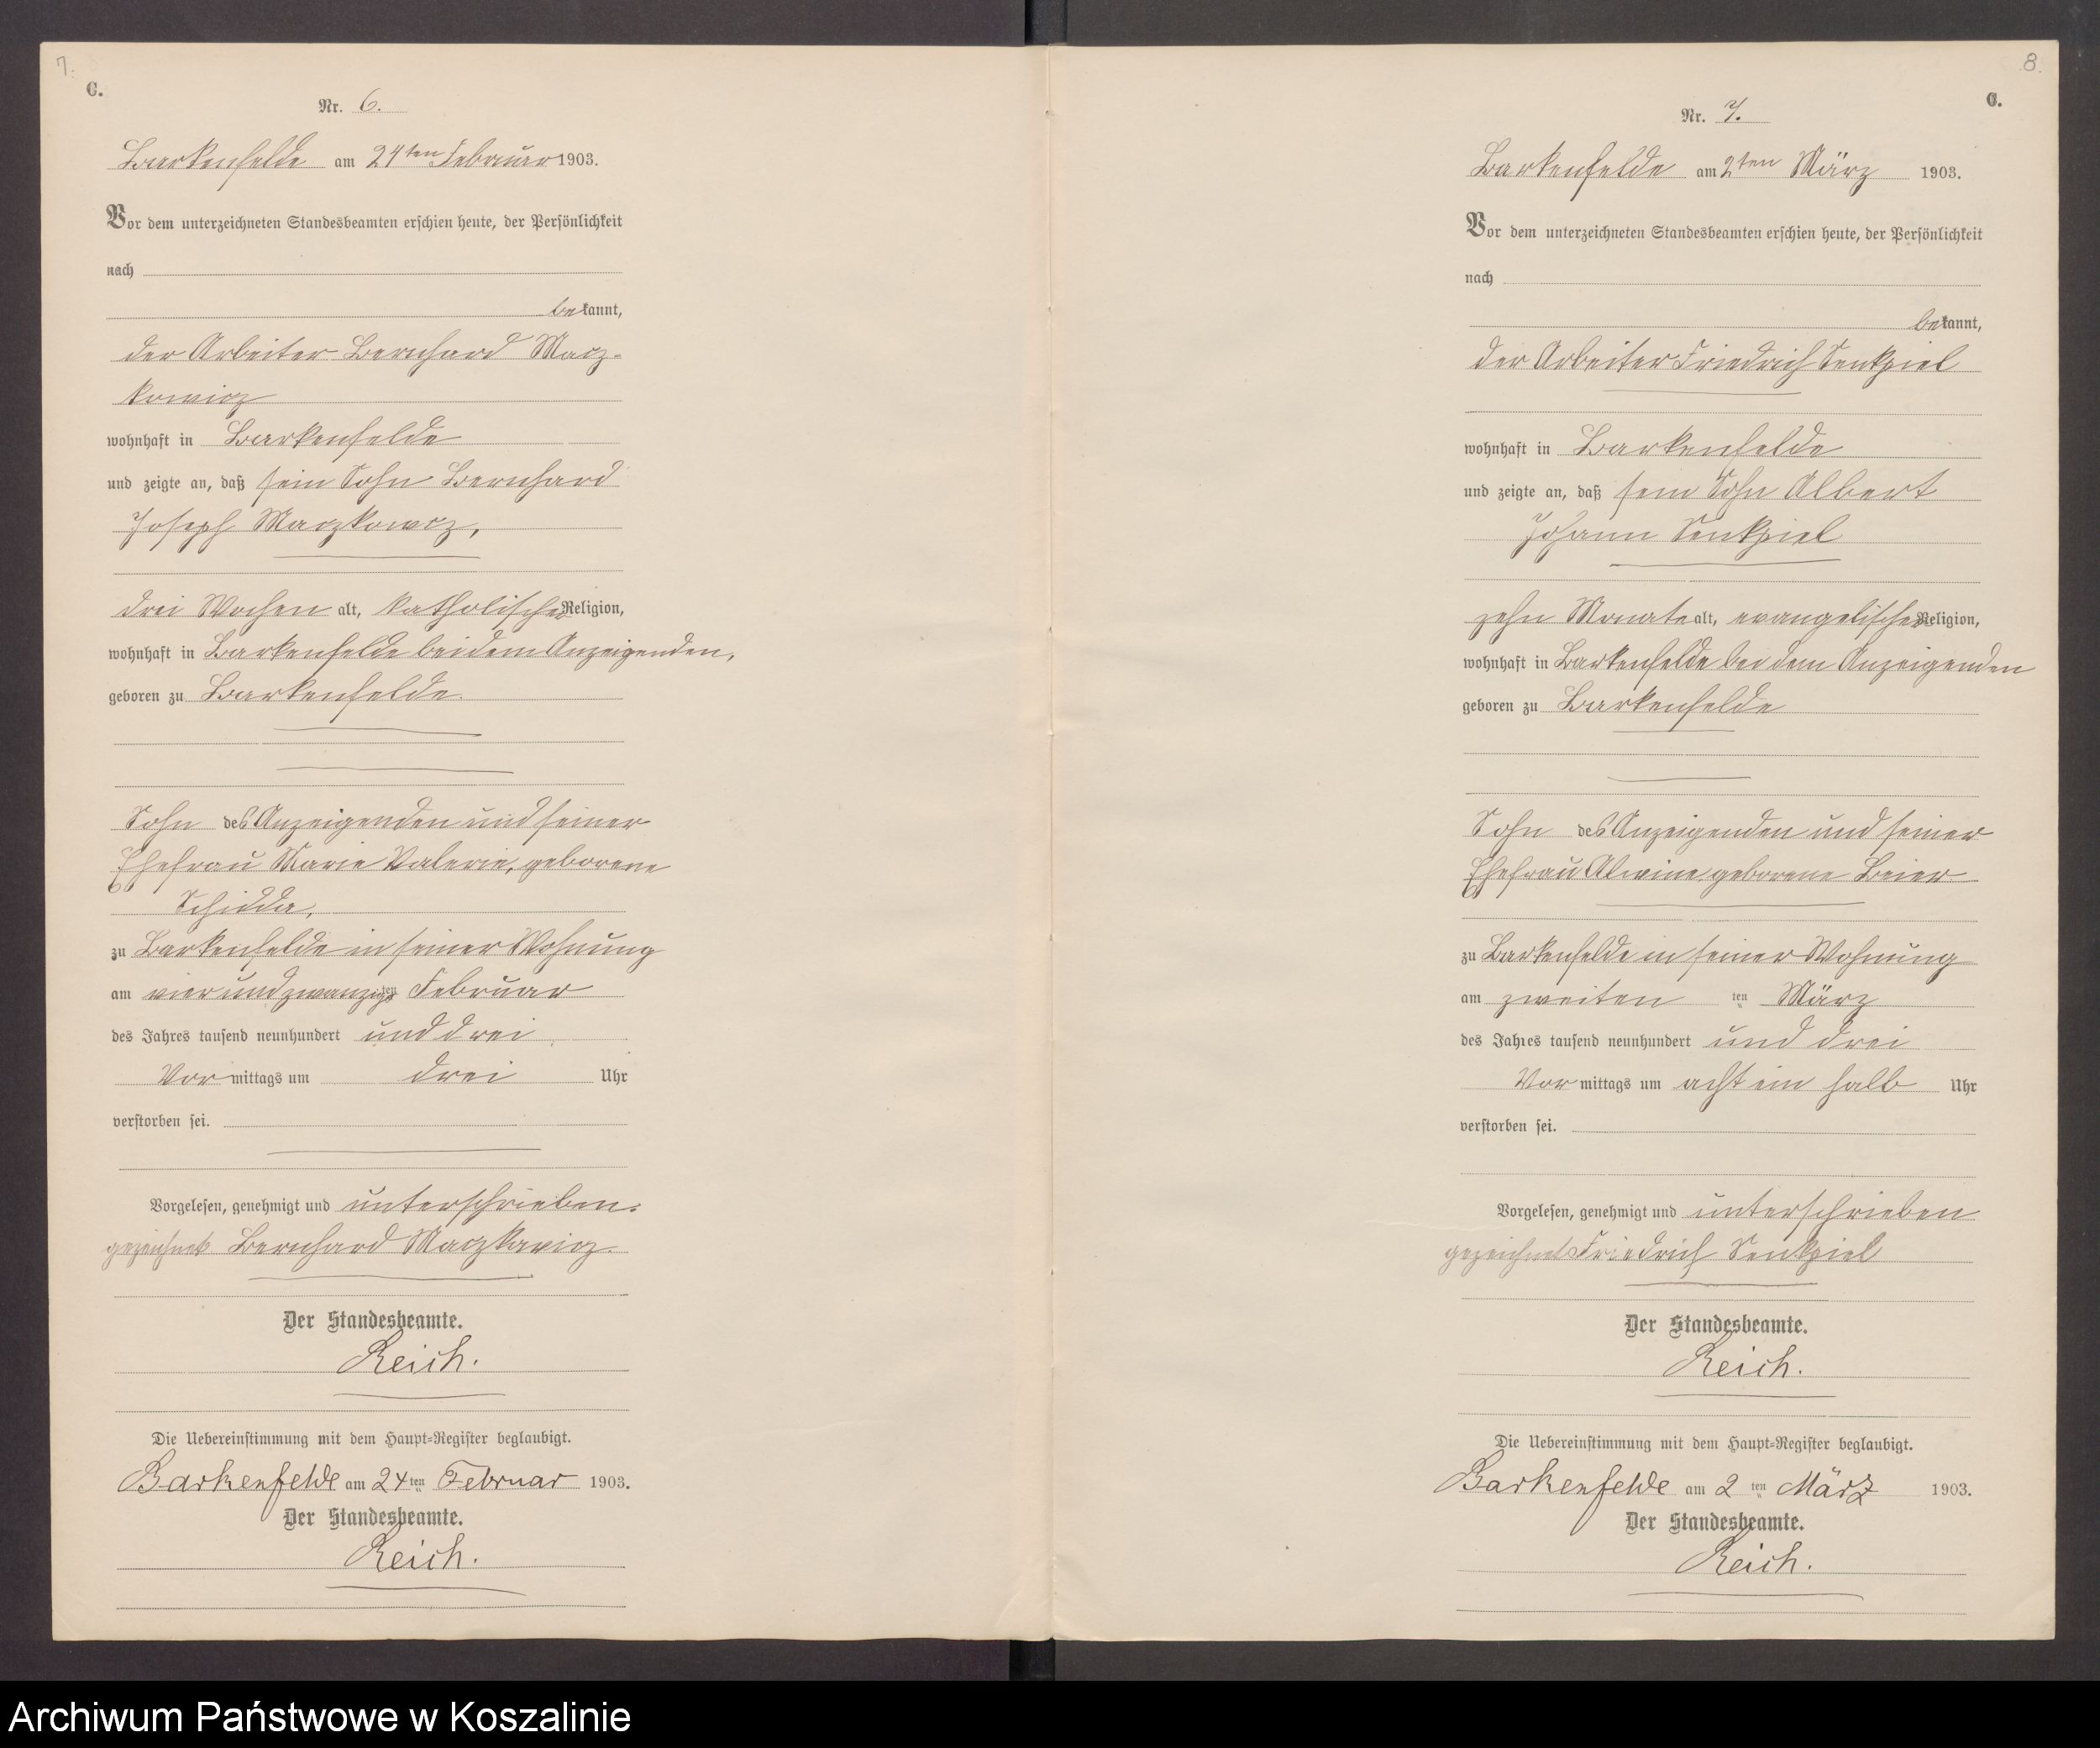 7.
C.
Nr. 6.
Barkenfelde am 24ten Februar 1903.
Vor dem unterzeichneten Standesbeamten erschien heute, der Persönlichkeit
nach
bekannt,
der Arbeiter Bernhard Marz-
kowicz
wohnhaft in Barkenfelde
und zeigte an, daß sein Sohn Bernhard
Joseph Marzkowicz,
drei Wochen alt, katholischer Religion,
wohnhaft in Barkenfelde bei dem Anzeigenden,
geboren zu Barkenfelde
Sohn des Anzeigenden und seiner
Ehefrau Marie Valerie, geborene
Schidda,
zu Barkenfelde in seiner Wohnung
am vierundzwanzigsten Februar
des Jahres tausend neunhundert und drei
Vor mittags um drei Uhr
verstorben sei.
Vorgelesen, genehmigt und unterschrieben.
gezeichnet Bernhard Marzkowicz.
Der Standesbeamte.
Reich.
Die Uebereinstimmung mit dem Haupt-Register beglaubigt.
Barkenfelde am 24ten Februar 1903.
Der Standesbeamte.
Reich.
8.
C.
Nr. 7.
Barkenfelde am 2ten März 1903.
Vor dem unterzeichneten Standesbeamten erschien heute, der Persönlichkeit
nach
bekannt,
der Arbeiter Friedrich Senkpiel
wohnhaft in Barkenfelde
und zeigte an, daß sein Sohn Albert
Johann Senkpiel
zehn Monate alt, evangelischer Religion,
wohnhaft in Barkenfelde bei dem Anzeigenden
geboren zu Barkenfelde
Sohn des Anzeigenden und seiner
Ehefrau Alwine geborene Beier
zu Barkenfelde in seiner Wohnung
am zweiten ten März
des Jahres tausend neunhundert und drei
Vor mittags um acht ein halb Uhr
verstorben sei.
Vorgelesen, genehmigt und unterschrieben
gezeichnet Friedrich Senkpiel
Der Standesbeamte.
Reich.
Die Uebereinstimmung mit dem Haupt-Register beglaubigt.
Barkenfelde am 2 ten März 1903.
Der Standesbeamte.
Reich.
Archiwum Państwowe w Koszalinie